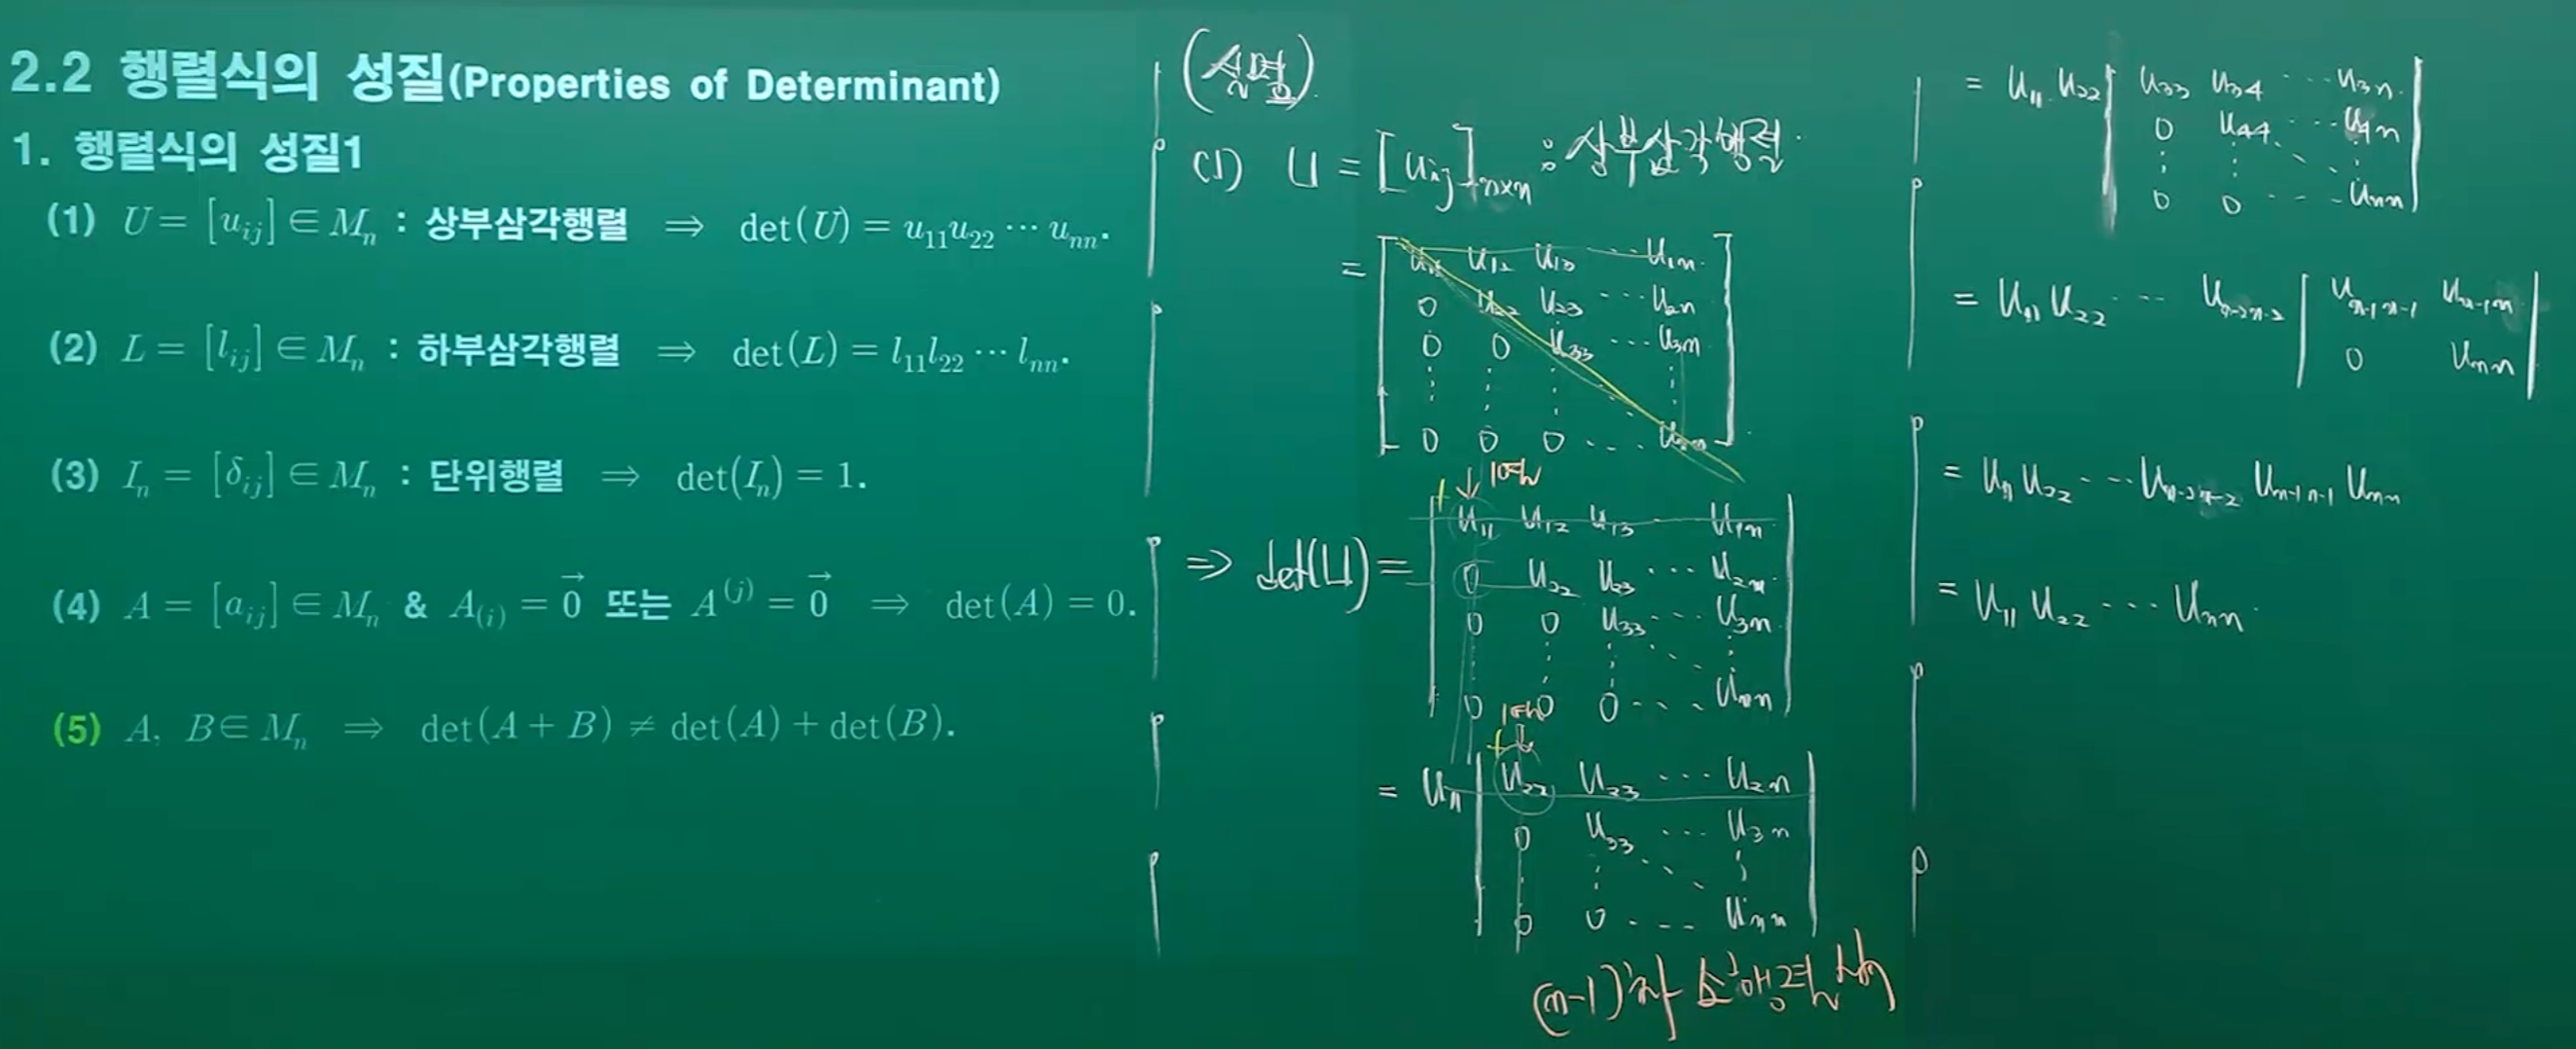 2.2 행렬식의 성질(Properties of Determinant)
1. 행렬식의 성질1
(1) U = [u_{ij}] ∈ M_n : 상부삼각행렬 ⇒ det(U) = u_{11}u_{22} ⋯ u_{nn}.
(2) L = [l_{ij}] ∈ M_n : 하부삼각행렬 ⇒ det(L) = l_{11}l_{22} ⋯ l_{nn}.
(3) I_n = [δ_{ij}] ∈ M_n : 단위행렬 ⇒ det(I_n) = 1.
(4) A = [a_{ij}] ∈ M_n & A_{(i)} = \vec{0} 또는 A^{(j)} = \vec{0} ⇒ det(A) = 0.
(5) A, B ∈ M_n ⇒ det(A + B) ≠ det(A) + det(B).
(설명)
(1) U = [u_{ij}]_{n×n} : 상부삼각행렬.
= [ u_{11} u_{12} u_{13} ⋯ u_{1n}
0 u_{22} u_{23} ⋯ u_{2n}
0 0 u_{33} ⋯ u_{3n}
⋮ ⋮ ⋮ ⋱ ⋮
0 0 0 ⋯ u_{nn} ]
1열
+
⇒ det(U) = | u_{11} u_{12} u_{13} ⋯ u_{1n}
0 u_{22} u_{23} ⋯ u_{2n}
0 0 u_{33} ⋯ u_{3n}
⋮ ⋮ ⋮ ⋱ ⋮
0 0 0 ⋯ u_{nn} |
1열
+
= u_{11} | u_{22} u_{23} ⋯ u_{2n}
0 u_{33} ⋯ u_{3n}
⋮ ⋮ ⋱ ⋮
0 0 ⋯ u_{nn} |
(n-1)차 소행렬식
= u_{11} u_{22} | u_{33} u_{34} ⋯ u_{3n}
0 u_{44} ⋯ u_{4n}
⋮ ⋮ ⋱ ⋮
0 0 ⋯ u_{nn} |
= u_{11} u_{22} ⋯ u_{n-2n-2} | u_{n-1n-1} u_{n-1n}
0 u_{nn} |
= u_{11} u_{22} ⋯ u_{n-2n-2} u_{n-1n-1} u_{nn}
= u_{11} u_{22} ⋯ u_{nn}.